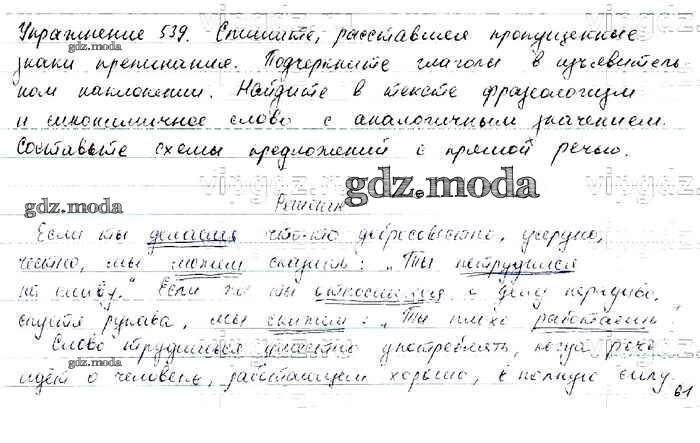 Упражнение 539. Спишите, расставляя пропущенные
знаки препинания. Подчеркните глаголы в изъявитель-
ном наклонении. Найдите в тексте фразеологизм
и синонимичное слово с аналогичным значением.
Составьте схемы предложений с прямой речью.
gdz.moda
gdz.moda
gdz.moda
Решение
Если ты делаешь что-то добросовестно, усердно,
честно, мы можем сказать: „Ты потрудился
на славу." Если же ты относишься к делу нерадиво,
спустя рукава, мы скажем: „Ты плохо работаешь."
Слово трудишься уместно употреблять, когда речь
gdz.moda
идёт о человеке, работающем хорошо, в полную силу.
gdz.moda
61